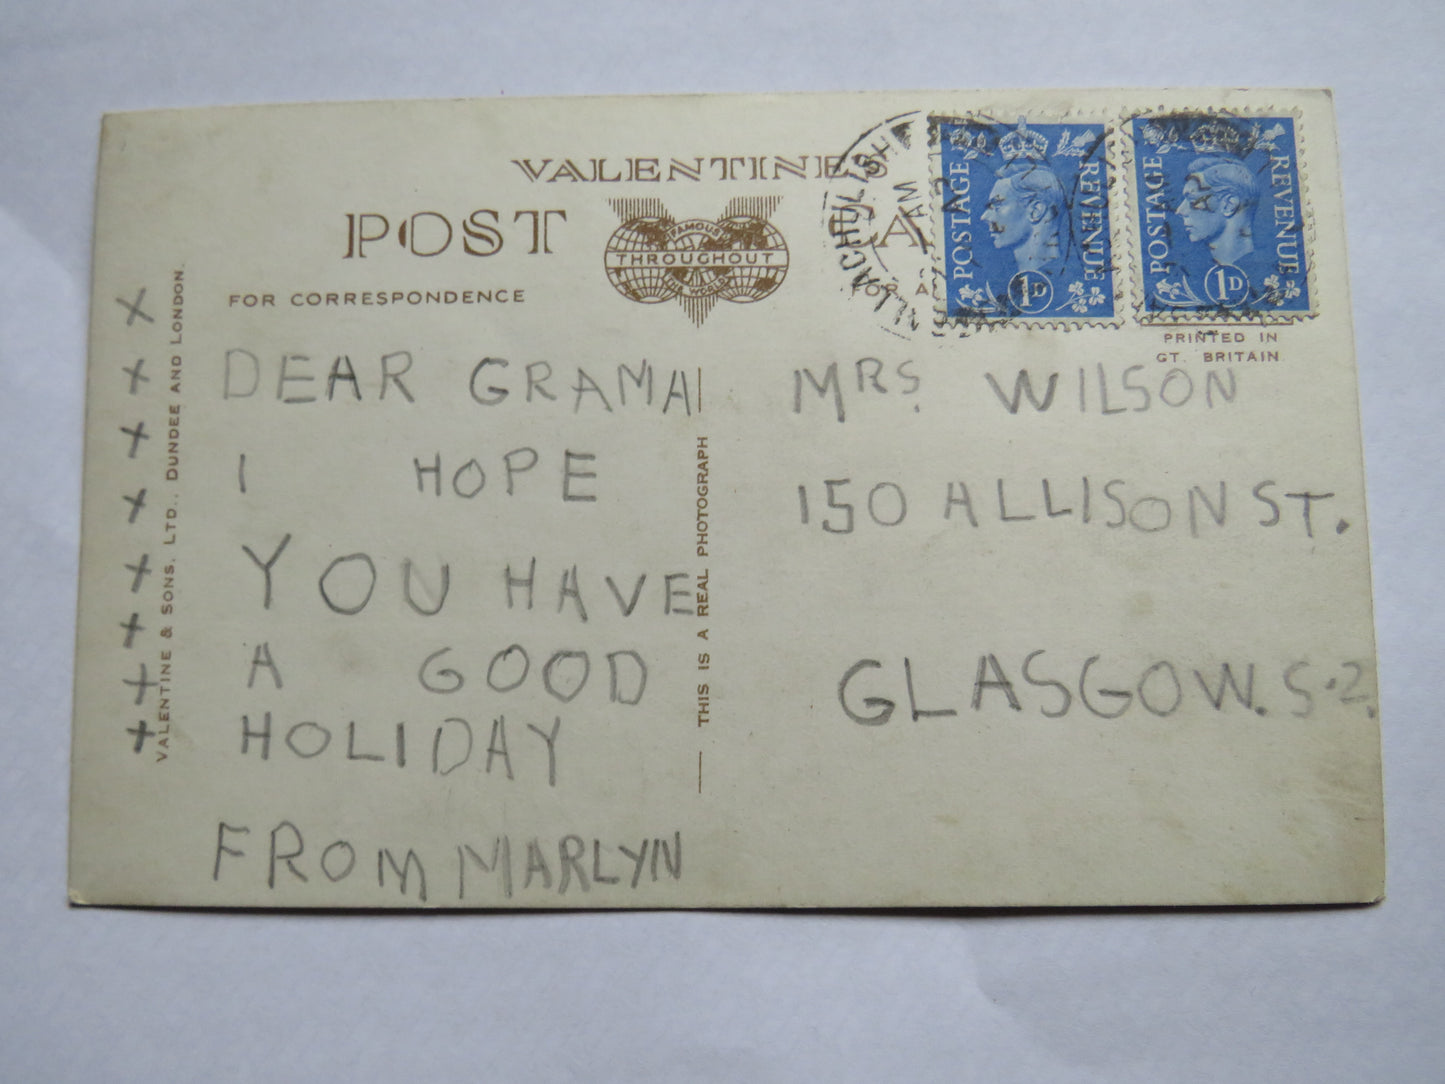 VALENTINE'S
POST
FAMOUS
THROUGHOUT
THE WORLD
FOR CORRESPONDENCE
FOR A
AM
POSTAGE REVENUE
1D
POSTAGE REVENUE
1D
PRINTED IN
GT. BRITAIN.
DEAR GRAMA
I HOPE
YOU HAVE
A GOOD
HOLIDAY
FROM MARLYN
MRS. WILSON
150 ALLISON ST.
GLASGOW. S.2.
X
X
X
X
X
X
X
X
VALENTINE & SONS, LTD., DUNDEE AND LONDON.
THIS IS A REAL PHOTOGRAPH